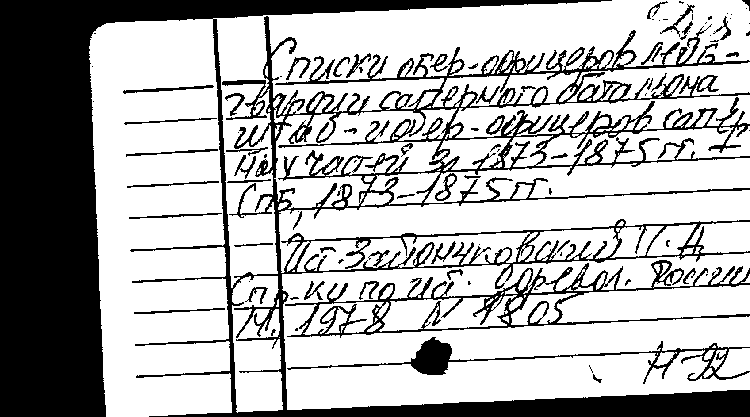 Списки обер-офицеров лейб-
гвардии саперного батальона
штаб- и обер-офицеров сапер
ных частей за 1873-1875 гг.
Спб, 1873-1875 гг.
Ист. Зайончковский П. А.
Спр-ки по ист. доревол. России
М., 1978 N 1805
Н-92